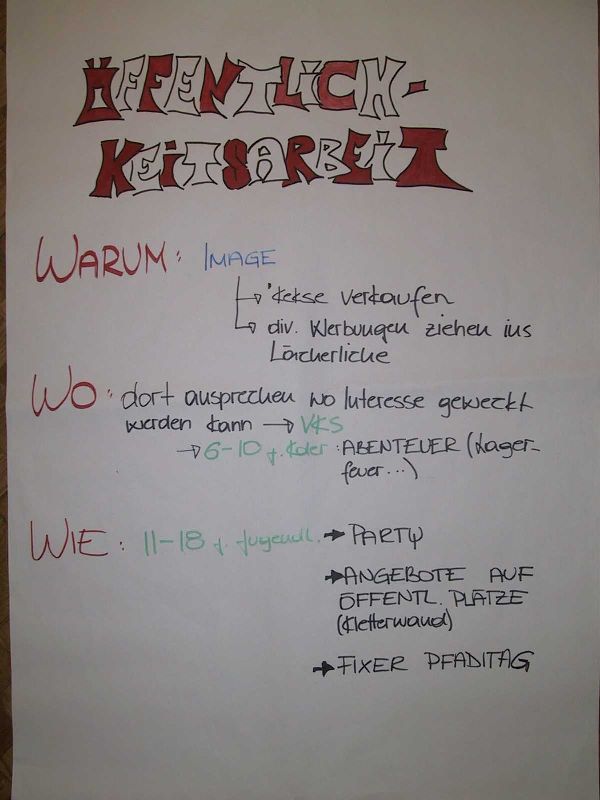 ÖFFENTLICH-
KEITSARBEIT
WARUM: IMAGE
→ "Kekse verkaufen
→ div. Werbungen ziehen ins
Lächerliche
WO: dort ansprechen wo Interesse geweckt
werden kann → VKS
→ 6-10 j. Kder: ABENTEUER (Lager-
feuer...)
WIE: 11-18 j. Jugendl. → PARTY
→ ANGEBOTE AUF
ÖFFENTL. PLÄTZE
(Kletterwand)
→ FIXER PFADITAG